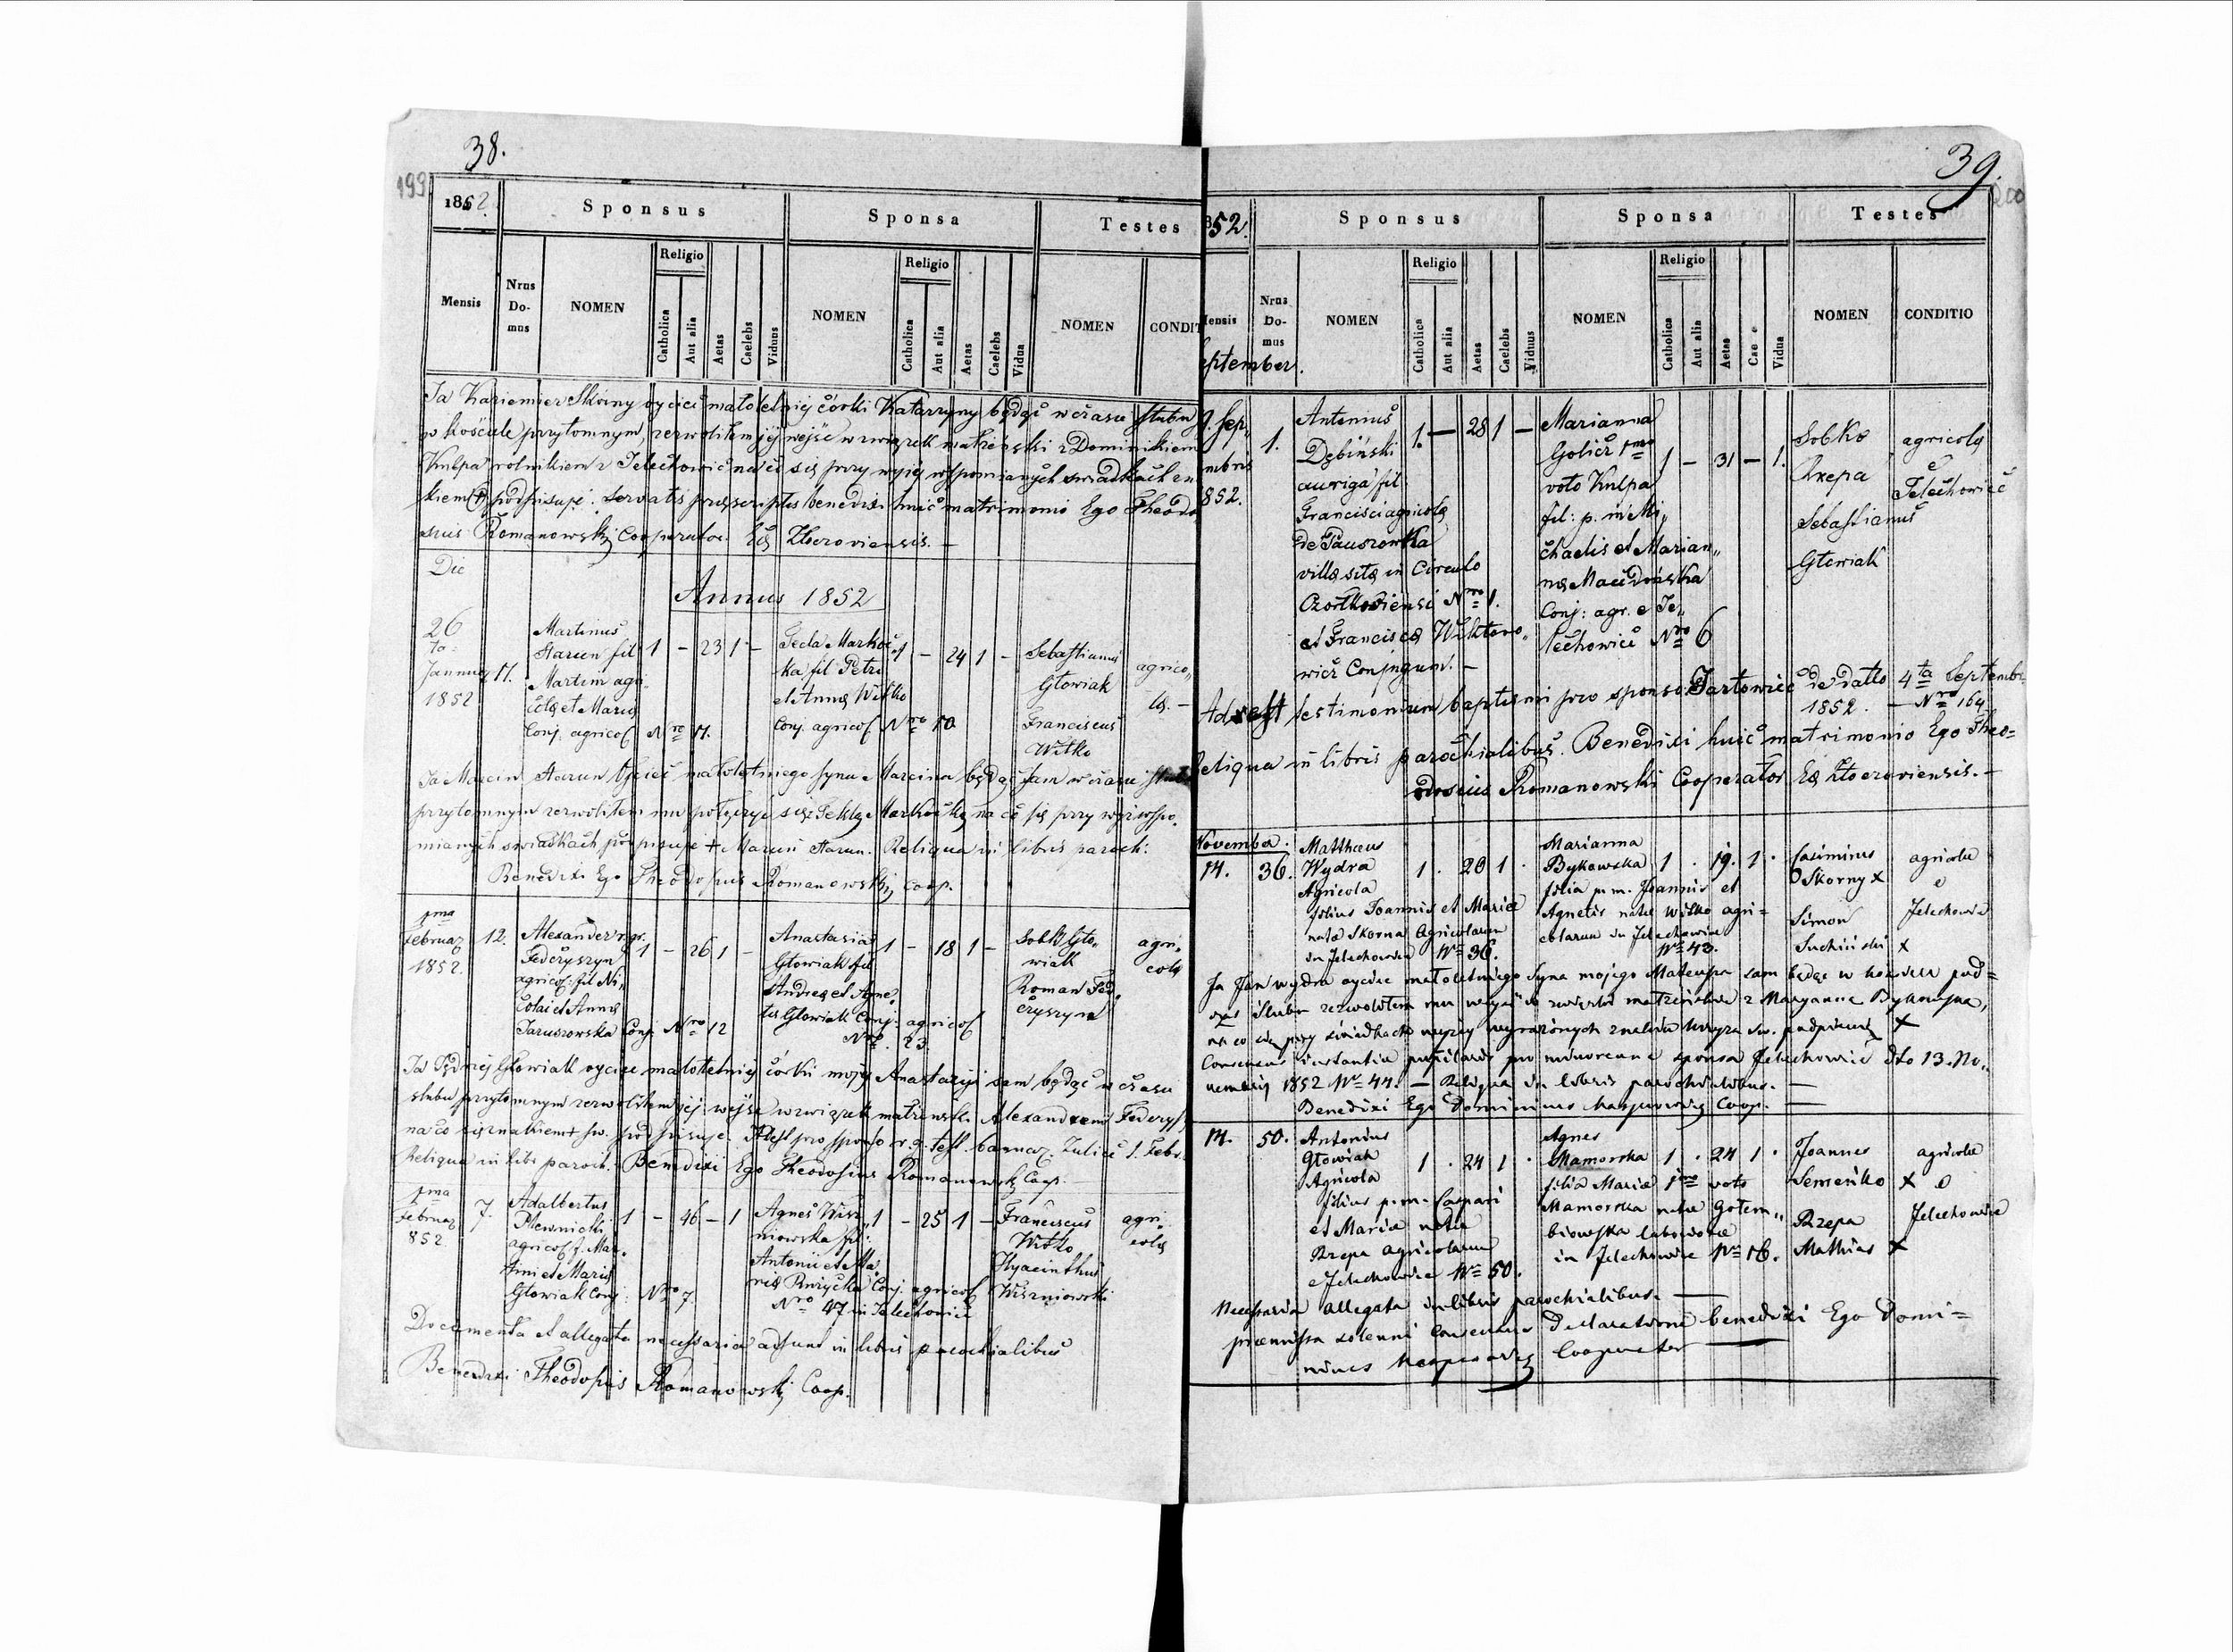 38.
199
1852.
Sponsus
Sponsa
Testes
Mensis
Nrus Do-mus
NOMEN
Religio
Catholica
Aut alia
Aetas
Caelebs
Viduus
NOMEN
Religio
Catholica
Aut alia
Aetas
Caelebs
Vidua
NOMEN
CONDIT
Ja Kazimierz Skorny oyciec małoletniej córki Katarzyny będąc w czasie ślubu
w kościele przytomnym, zezwoliłem jéj wejść w związek małżeński z Dominikiem
Kulpa rolnikiem z Jelechowic na co się przy wyżej wspomianych świadkach zna
kiem + podpisuję. Servatis praescriptis benedixi huic matrimonio Ego Theodo
sius Romanowski Cooperator Eccl Złoczoviensis. —
Die
Annus 1852
26
ta
Januar
1852
11.
Martinus
Starun fil
Martini agri
colae et Maria
Conj. agricol Nro 11.
1 — 23 1 —
Tecla Markoc
ka fil Petri
et Anna Witko
Conj. agricol Nro 10
1 — 24 1 —
Sebastianus
Głowiak
Franciscus
Witko
agrico„
lae. —
Ja Marcin Starun Oyciec małoletniego syna Marcina będąc sam w czasie
przytomnym zezwoliłem mu połączyć się z Teklą Markocką na co się przy wyż wspo„
mianych świadkach podpisuję + Marcin Starun. Reliqua in libris paroch:
Benedixi Ego Theodosius Romanowski Coop.
1ma
Februar
1852.
12.
Alexander r. gr.
Fedczyszyn
agricol. fil Ni„
colai et Anna
Jaruszowska Conj. Nro 12
1 — 26 1 —
Anastasia
Głowiak fil
Andrea et Agne„
tis Głowiak Conj. agricol
Nro. 23.
1 — 18 1 —
Sobko Gło„
wiak
Roman Fed„
czyszyn
agri„
cola
Ja Jędrzej Głowiak oyciec małoletniej córki mojej Anastazyi sam będąc w czasie
ślubu przytomnym zezwoliłem jej wejść w związek małżeński Alexandrem Fedczysz
na co się znakiem + św. podpisuję. Adest pro sponso r. g. test. bannor. 1. Febr.
Reliqua in libr paroch. Benedixi Ego Theodosius Romanowski Coop.
1ma
Februar
852
7.
Adalbertus
Plewnicki
agricol. f. Mar„
tini et Maria
Głowiak Conj: Nro 7
1 — 46 — 1
Agnes Wisz„
niowska fil:
Antonii et Ma„
ria Conj. agricol
Nro 47 in Jelechowice
1 — 25 1 —
Franciscus
Witko
Hyacinthus
Wiszniowski
agri„
cola
Documenta et allegata necessaria adsunt in libris parochialibus
Benedixi Theodosius Romanowski Coop.
39.
200
852.
Sponsus
Sponsa
Testes
Mensis
Nrus Do-mus
NOMEN
Religio
Catholica
Aut alia
Aetas
Caelebs
Viduus
NOMEN
Religio
Catholica
Aut alia
Aetas
Cae e
Vidua
NOMEN
CONDITIO
eptember.
9. Sep„
mbris
852.
1.
Antonius
Dębiński
auriga fil.
Francisci agricola
de Pauszowka
villa sita in Circulo
Czortkoviensi Nro 1.
et Francisca Wiktoro„
wicz Conjugum. —
1. — 28 1 —
Marianna
Golicz 1mo
voto Kulpa
fil: p. m Mi„
chaelis et Marian„
na Macedońska
Conj: agr. e Je„
lechowice Nro 6
1 — 31 — 1.
Sobko
Rzepa
Sebastianus
Głowiak
agricola
e
Jelechowice
Adest testimonium baptismi pro sponso Jazłowiec de datto 4ta Septembr.
1852. — Nro 164
Reliqua in libris parochialibus. Benedixi huic matrimonio Ego Theo=
dosius Romanowski Cooperator Ecc Złoczoviensis. —
November.
14.
36.
Matthaeus
Wydra
Agricola
filius Joannis et Maria
nata Skorna Agricolarum
in Jelechowice Nro 36.
1 . 20 1 .
Marianna
Bykowska
filia p. m. Joannis et
Agnetis nata Witko agri=
colarum in Jelechowice
Nro 43.
1 . 19. 1 .
Casimirus
Skorny x
Simon
Suchiński x
agricolae
e
Jelechowice
Ja Jan Wydra oyciec małoletniego Syna mojego Mateusza sam będąc w kościele pod=
czas ślubu zezwoliłem mu wejść w związki małżeństwa z Maryanną Bykowską,
na co się przy świadkach wyżej wyrażonych znakiem krzyża św. podpisuję x
Consensus instantiae pupillaris pro minorenne sponsa Jelechowice dto 13. No„
vembris 1852 Nro 44. — Reliqua in libris parochialibus. —
Benedixi Ego Dominicus Coop. —
14.
50.
Antonius
Głowiak
Agricola
filius p. m. Caspari
et Maria nata
Rzepa agricolarum
e Jelechowice Nro 50.
1 . 24 1 .
Agnes
Mamorska
filia Maria 1mo voto
Mamorska nata Gołem„
biowska laboriosa
in Jelechowice Nro 16.
1 . 24 1 .
Joannes
Semeńko x
Rzepa
Mathias x
agricolae
e
Jelechowice
Necessaria allegata in libris parochialibus. —
praemissa solenni Consensus Declaratione benedixi Ego Domi=
nicus Cooperator —